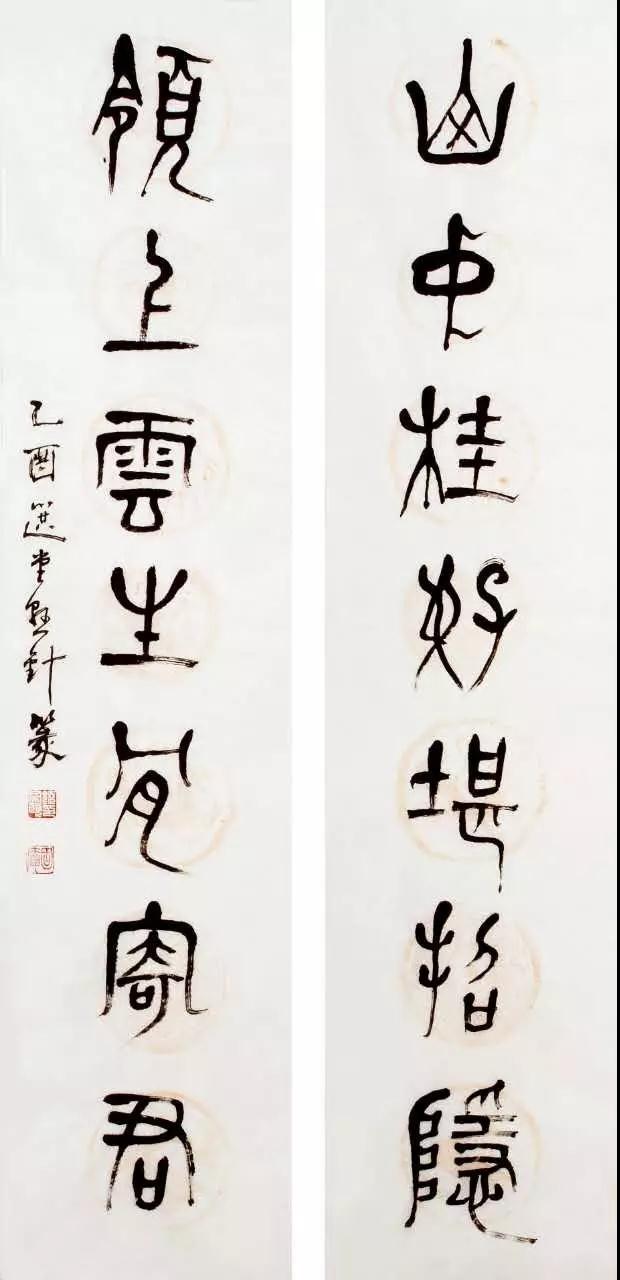 山中桂好堪招隱
領上雲生寄君
乙酉選堂懸針篆